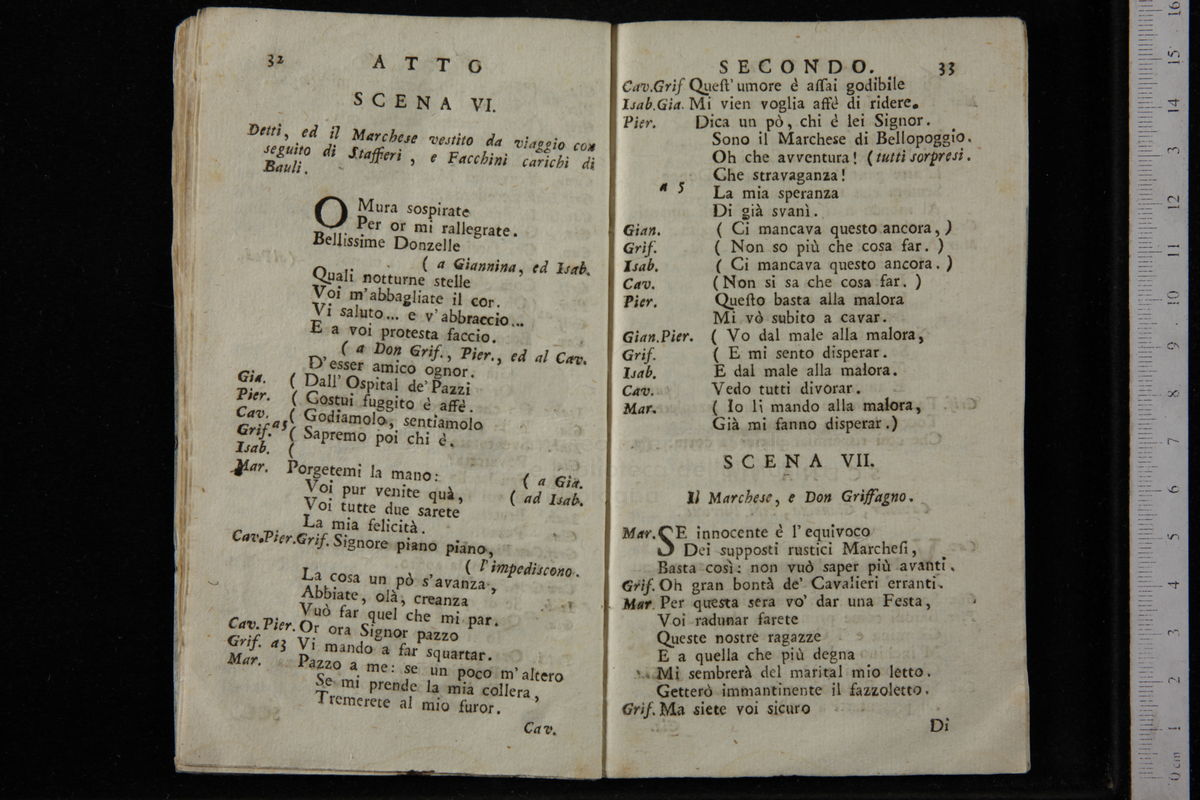 32 ATTO
SCENA VI.
Detti, ed il Marchese vestito da viaggio con
seguito di Stafferi, e Facchini carichi di
Bauli.
O Mura sospirate
Per or mi rallegrate.
Bellissime Donzelle
( a Giannina, ed Isab.
Quali notturne stelle
Voi m'abbagliate il cor.
Vi saluto... e v'abbraccio...
E a voi protesta faccio.
( a Don Grif., Pier., ed al Cav.
D'esser amico ognor.
Gia. ( Dall' Ospital de' Pazzi
Pier. ( Costui fuggito è affè.
Cav. ( Godiamolo, sentiamolo
Grif. a5 ( Sapremo poi chi è.
Isab. (
Mar. Porgetemi la mano: ( a Gia.
Voi pur venite quà, ( ad Isab.
Voi tutte due sarete
La mia felicità.
Cav.Pier.Grif. Signore piano piano,
( l'impediscono.
La cosa un pò s'avanza,
Abbiate, olà, creanza
Vuó far quel che mi par.
Cav. Pier. Or ora Signor pazzo
Grif. a3 Vi mando a far squartar.
Mar. Pazzo a me: se un poco m'altero
Se mi prende la mia collera,
Tremerete al mio furor.
Cav.
SECONDO. 33
Cav.Grif Quest' umore è assai godibile
Isab.Gia. Mi vien voglia affè di ridere.
Pier. Dica un pò, chi è lei Signor.
Sono il Marchese di Bellopoggio.
Oh che avventura! (tutti sorpresi.
Che stravaganza!
a 5 La mia speranza
Di già svanì.
Gian. ( Ci mancava questo ancora, )
Grif. ( Non so più che cosa far. )
Isab. ( Ci mancava questo ancora. )
Cav. (Non si sa che cosa far. )
Pier. Questo basta alla malora
Mi vò subito a cavar.
Gian.Pier. ( Vo dal male alla malora,
Grif. ( E mi sento disperar.
Isab. E dal male alla malora.
Cav. Vedo tutti divorar.
Mar. ( Io li mando alla malora,
Già mi fanno disperar.)
SCENA VII.
Il Marchese, e Don Griffagno.
Mar. SE innocente è l'equivoco
Dei supposti rustici Marchesi,
Basta così: non vuó saper più avanti.
Grif. Oh gran bontà de' Cavalieri erranti.
Mar Per questa sera vo' dar una Festa,
Voi radunar farete
Queste nostre ragazze
E a quella che più degna
Mi sembrerà del marital mio letto.
Getterò immantinente il fazzoletto.
Grif. Ma siete voi sicuro
Di
0 cm 1 2 3 4 5 6 7 8 9 10 11 12 3 14 15 16